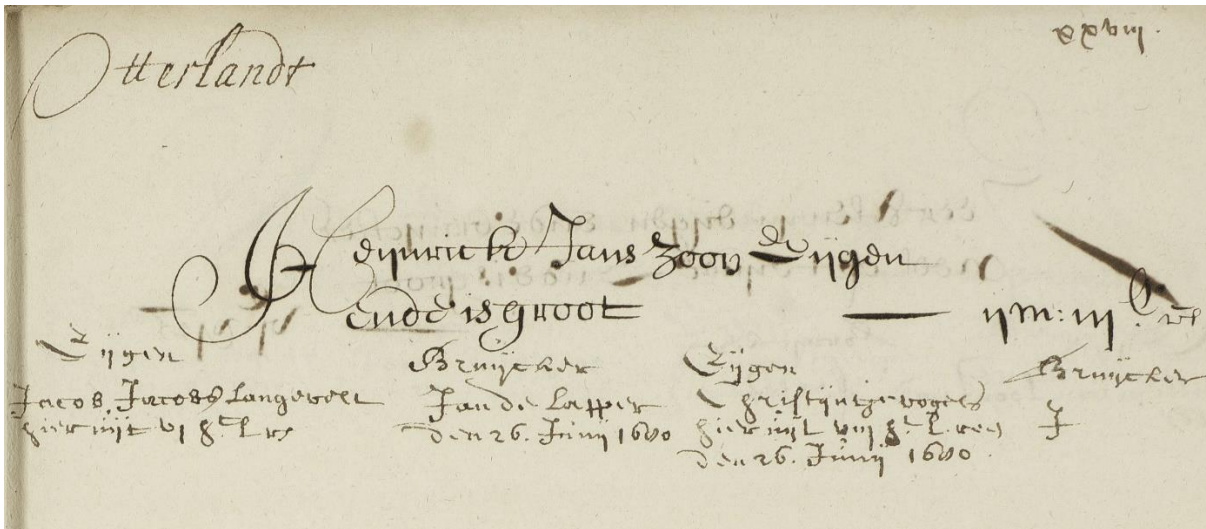 xxviij.
Otterlandt
Heynrick Jans zoon Eijgen
ende is groot
Eijgen
Jacob Jacobs Langevelt
hier uijt vj
Bruijcker
Jan de Lapper
den 26. Junij 1680
Eijgen
Christijntge vogels
hier uijt viij
den 26. Junij 1680.
Bruijcker
J